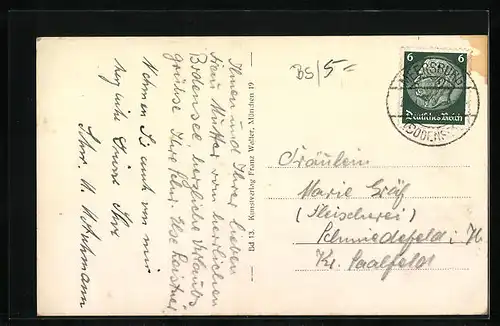 Ihnen und Ihrer lieben
Frau Mutter vom herrlichen
Bodensee, herzliche Urlaubs-
grüsse Ihre Schw. Ilse
Nehmen Sie auch von mir
herzliche Grüsse Ihre
Schw. M.
Bd 13. Kunstverlag Franz Walter, München 19
BS/5=
6 6
Deutsches Reich
MEERSBURG
(BODENSEE)
Fräulein
Marie Gräf
(Fleischerei)
Schmiedefeld i. Th
Kr. Saalfeld